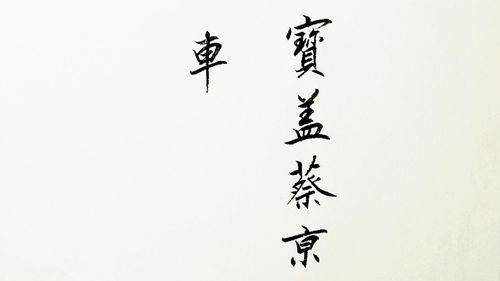 寶盖蔡京
車